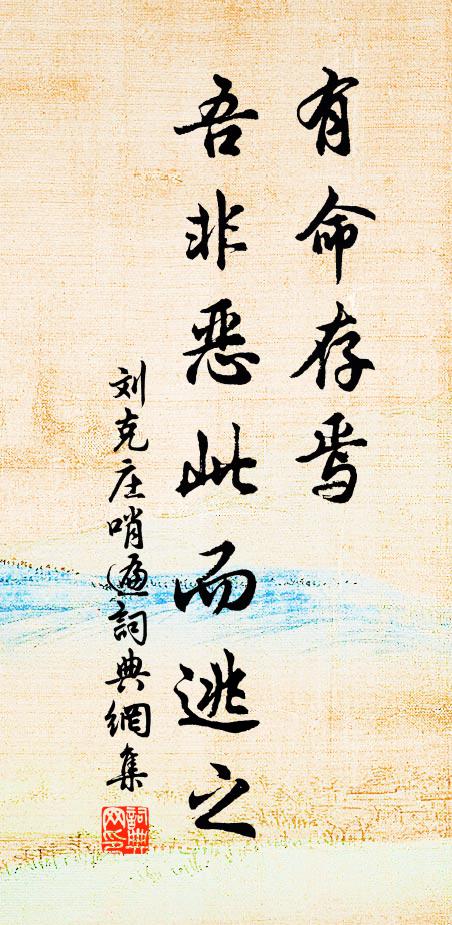 有命存焉
吾非恶此而逃之
刘克庄哨遍詞典網集
詞典网印